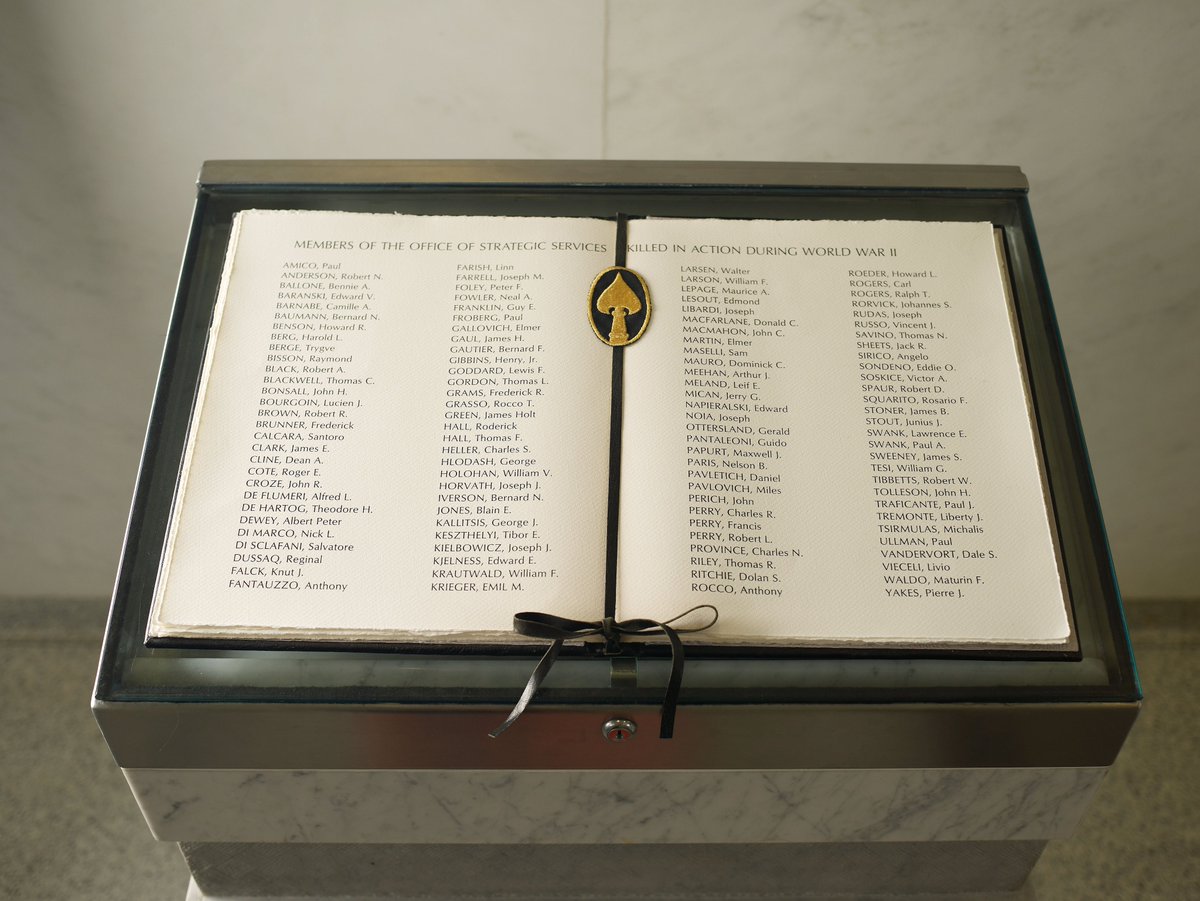 MEMBERS OF THE OFFICE OF STRATEGIC SERVICES KILLED IN ACTION DURING WORLD WAR II
AMICO, Paul
ANDERSON, Robert N.
BALLONE, Bennie A.
BARANSKI, Edward V.
BARNABE, Camille A.
BAUMANN, Bernard N.
BENSON, Howard R.
BERG, Harold L.
BERGE, Trygve
BISSON, Raymond
BLACK, Robert A.
BLACKWELL, Thomas C.
BONSALL, John H.
BOURGOIN, Lucien J.
BROWN, Robert R.
BRUNNER, Frederick
CALCARA, Santoro
CLARK, James E.
CLINE, Dean A.
COTE, Roger E.
CROZE, John R.
DE FLUMERI, Alfred L.
DE HARTOG, Theodore H.
DEWEY, Albert Peter
DI MARCO, Nick L.
DI SCLAFANI, Salvatore
DUSSAQ, Reginal
FALCK, Knut J.
FANTAUZZO, Anthony
FARISH, Linn
FARRELL, Joseph M.
FOLEY, Peter F.
FOWLER, Neal A.
FRANKLIN, Guy E.
FROBERG, Paul
GALLOVICH, Elmer
GAUL, James H.
GAUTIER, Bernard F.
GIBBINS, Henry, Jr.
GODDARD, Lewis F.
GORDON, Thomas L.
GRAMS, Frederick R.
GRASSO, Rocco T.
GREEN, James Holt
HALL, Roderick
HALL, Thomas F.
HELLER, Charles S.
HLODASH, George
HOLOHAN, William V.
HORVATH, Joseph J.
IVERSON, Bernard N.
JONES, Blain E.
KALLITSIS, George J.
KESZTHELYI, Tibor E.
KIELBOWICZ, Joseph J.
KJELNESS, Edward E.
KRAUTWALD, William F.
KRIEGER, EMIL M.
LARSEN, Walter
LARSON, William F.
LEPAGE, Maurice A.
LESOUT, Edmond
LIBARDI, Joseph
MACFARLANE, Donald C.
MACMAHON, John C.
MARTIN, Elmer
MASELLI, Sam
MAURO, Dominick C.
MEEHAN, Arthur J.
MELAND, Leif E.
MICAN, Jerry G.
NAPIERALSKI, Edward
NOIA, Joseph
OTTERSLAND, Gerald
PANTALEONI, Guido
PAPURT, Maxwell J.
PARIS, Nelson B.
PAVLETICH, Daniel
PAVLOVICH, Miles
PERICH, John
PERRY, Charles R.
PERRY, Francis
PERRY, Robert L.
PROVINCE, Charles N.
RILEY, Thomas R.
RITCHIE, Dolan S.
ROCCO, Anthony
ROEDER, Howard L.
ROGERS, Carl
ROGERS, Ralph T.
RORVICK, Johannes S.
RUDAS, Joseph
RUSSO, Vincent J.
SAVINO, Thomas N.
SHEETS, Jack R.
SIRICO, Angelo
SONDENO, Eddie O.
SOSKICE, Victor A.
SPAUR, Robert D.
SQUARITO, Rosario F.
STONER, James B.
STOUT, Junius J.
SWANK, Lawrence E.
SWANK, Paul A.
SWEENEY, James S.
TESI, William G.
TIBBETTS, Robert W.
TOLLESON, John H.
TRAFICANTE, Paul J.
TREMONTE, Liberty J.
TSIRMULAS, Michalis
ULLMAN, Paul
VANDERVORT, Dale S.
VIECELI, Livio
WALDO, Maturin F.
YAKES, Pierre J.